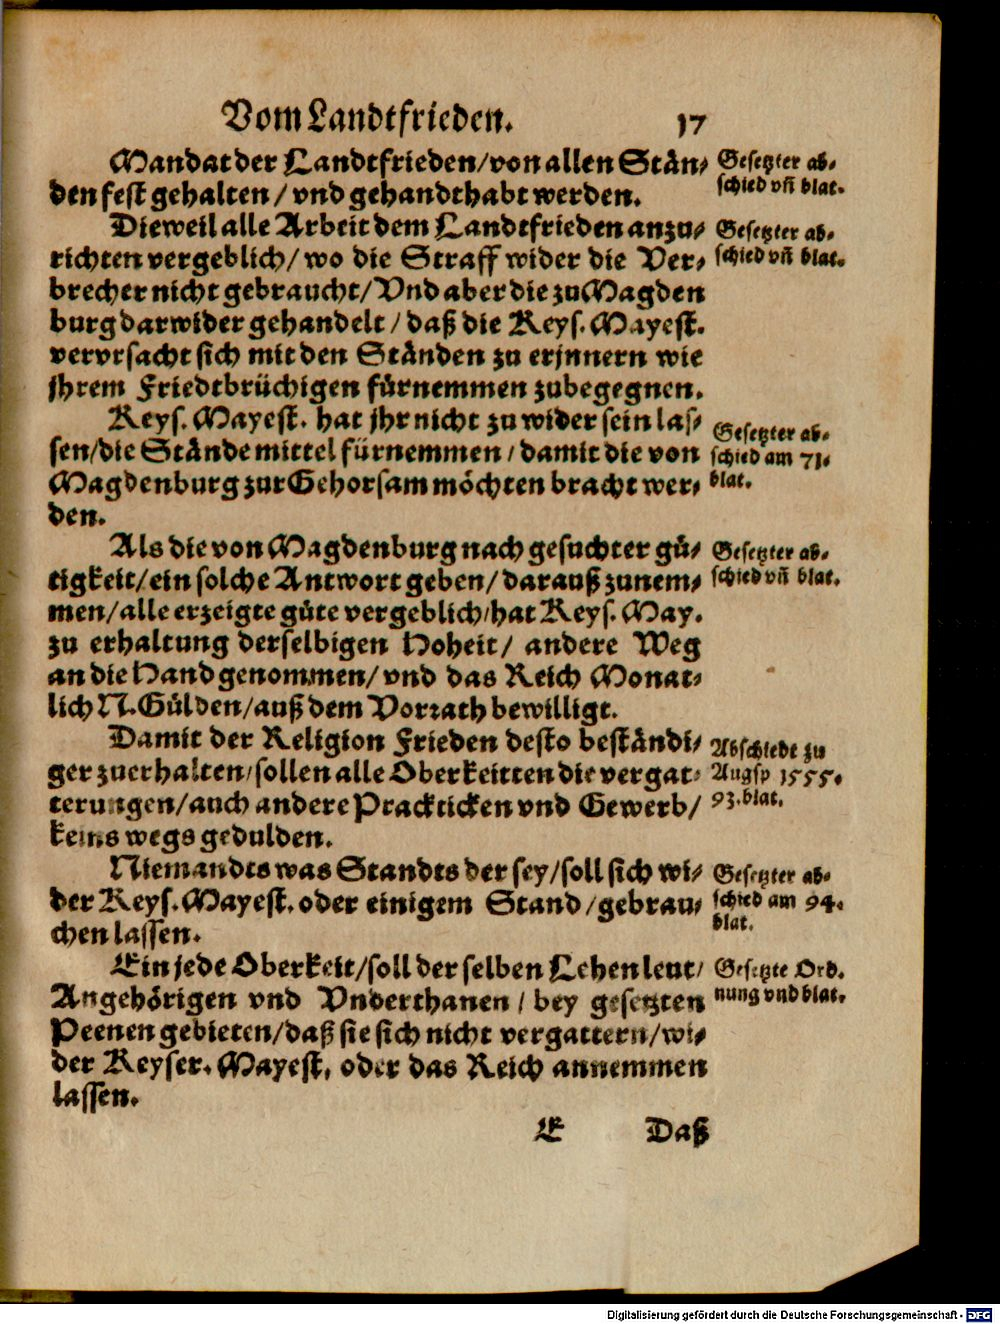 Vom Landtfrieden. 17
Mandat der Landtfrieden/von allen Stän⸗
den fest gehalten / vnd gehandthabt werden.
Gesetzter ab⸗
schied vñ blat.
Dieweil alle Arbeit dem Landtfrieden anzu⸗
richten vergeblich/ wo die Straff wider die Ver⸗
brecher nicht gebraucht/Vnd aber die zu Magden
burg darwider gehandelt / daß die Keys. Mayest.
vervrsacht sich mit den Ständen zu erjnnern wie
jhrem Friedtbrüchigen fürnemmen zubegegnen.
Gesetzter ab⸗
schied vñ blat.
Keys. Mayest. hat jhr nicht zu wider sein las⸗
sen/die Stände mittel fürnemmen / damit die von
Magdenburg zur Gehorsam möchten bracht wer⸗
den.
Gesetzter ab⸗
schied am 71.
blat.
Als die von Magdenburg nach gesuchter gü⸗
tigkeit/ein solche Antwort geben/ darauß zunem⸗
men/alle erzeigte güte vergeblich/hat Keys. May.
zu erhaltung derselbigen Hoheit/ andere Weg
an die Hand genommen/ vnd das Reich Monat⸗
lich N. Gülden/auß dem Vorrath bewilligt.
Gesetzter ab⸗
schied vñ blat.
Damit der Religion Frieden desto beständi⸗
ger zuerhalten/sollen alle Oberkeitten die vergat⸗
terungen/auch andere Prackticken vnd Gewerb/
keins wegs gedulden.
Abschiedt zu
Augsp 1555.
93. blat.
Niemandts was Standts der sey/soll sich wi⸗
der Keys. Mayest. oder einigem Stand/gebrau⸗
chen lassen.
Gesetzter ab⸗
schied am 94.
blat.
Ein jede Oberkeit/soll derselben Lehenleut/
Angehörigen vnd Vnderthanen / bey gesetzten
Peenen gebieten/daß sie sich nicht vergattern/wi⸗
der Keyser. Mayest. oder das Reich annemmen
lassen.
Gesetzte Ord.
nung vnd blat.
E Daß
Digitalisierung gefördert durch die Deutsche Forschungsgemeinschaft - DFG